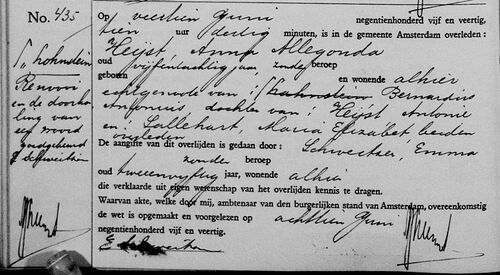 No. 435
S. hohnstein
Renvooi
en de doorha-
ling van
een woord
goedgekeurd
Op veertien Juni negentienhonderd vijf en veertig,
tien uur dertig minuten, is in de gemeente Amsterdam overleden:
Heijst, Anna Allegonda
oud vijfentachtig jaar, zonder beroep
geboren en wonende alhier
echtgenoote van: Bernardus
Antonius dochter van: Heijst, Antonie
en: Sallehart, Maria Elizabet beiden
overleden
De aangifte van dit overlijden is gedaan door: Schweitzer, Emma
zonder beroep
oud tweeenvijftig jaar, wonende alhier
die verklaarde uit eigen wetenschap van het overlijden kennis te dragen.
Waarvan akte, welke door mij, ambtenaar van den burgerlijken stand van Amsterdam, overeenkomstig
de wet is opgemaakt en voorgelezen op achttien Juni
negentienhonderd vijf en veertig.